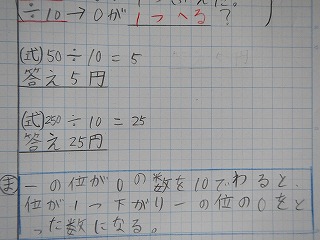 ÷10→0が1つへる?
(式)50÷10=5
答え 5円
(式)250÷10=25
答え 25円
ま 一の位が0の数を10でわると、
位が1つ下がり一の位の0をと
った数になる。